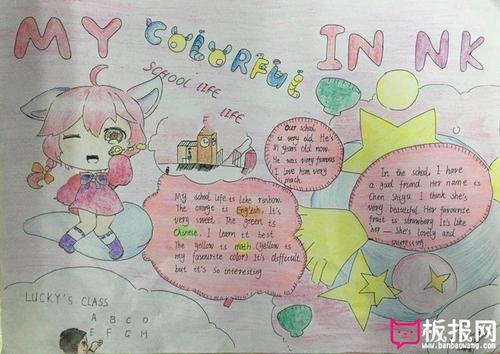 MY COLORFUL IN NK
SCHOOL LIFE
LIFE
Our school
is very old. He's
81 years old now.
He was very famous
I love him very
much.
My school life is like rainbow.
The orange is English. It's
very sweet. The green is
Chinese. I learn it best
The yellow is math (Yellow is
my favourite color) It's difficult
but it's so interesting.
In the school, I have
a good friend. Her name is
Chen Shiyu. I think she's
very beautiful. Her favourite
fruit is strawberry. It's like
her — She's lovely and
LUCKY'S CLASS
A B C D
E F G H
板报网
www.banbaowang.com